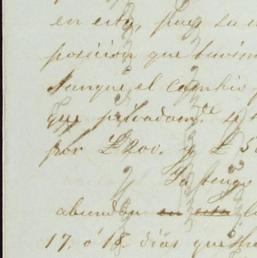 en esta, pues su
posicion que tuvim
Aunque el cambio
que privadam.te
por £200. y £ 5
Yo tengo
abundan en esta
17. ó 18. dias que